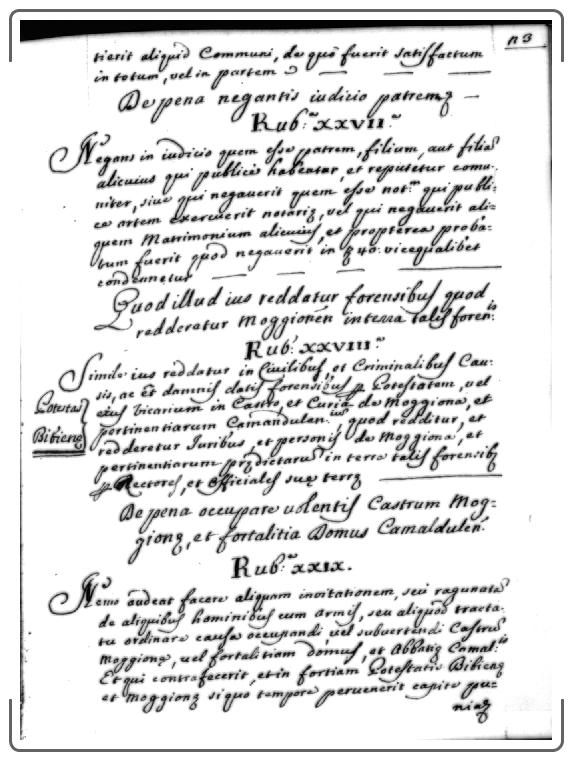 n 3
tierit aliquid Communi, de quo fuerit satisfactum
in totum, vel in partem
De pena negantis iudicio patrem
Rub.ª XXVII.ª
Negans in iudicio quem esse patrem, filium, aut filiã
alicuius qui publice habeatur, et reputetur comu-
niter, siue qui negauerit quem esse not.m qui publi-
ce artem exercuerit notarię, vel qui negauerit ali-
quem Matrimonium alicuius, et propterea proba-
tum fuerit quod negauerit in 40. vice qualibet
condennetur
Quod illud ius reddatur forensibus quod
redderetur Moggionen in terra talis foren.is
Rub.ª XXVIII.ª
Simile ius reddatur in Civilibus, et Criminalibus Cau-
sis, ac et damnis datis forensibus p Potestatem, vel
eius Vicarium in Castro, et Curia de Moggiona, et
Potestas
pertinentiarum Camandulen.ium, quod redditur, et
redderetur Iuribus, et personis de Moggiona, et
Bibienę
pertinentiarum prędictarũ in terra talis forensis
p Rectores, et Officiales suę terrę
De pena occupare uolentis Castrum Mog-
gionę, et fortalitia Domus Camaldulen.
Rub.ª XXIX.
Nemo audeat facere aliquam invitationem, seu ragunatã
de aliquibus hominibus cum armis, seu aliquod tracta-
tu ordinare causa occupandi, vel subvertendi Castrũ
Moggionę, vel fortalitiam domus, et Abbatię Camal.
Et qui contrafecerit, et in fortiam Potestatis Bibienę
et Moggionę si quo tempore pervenerit capite pu-
niat